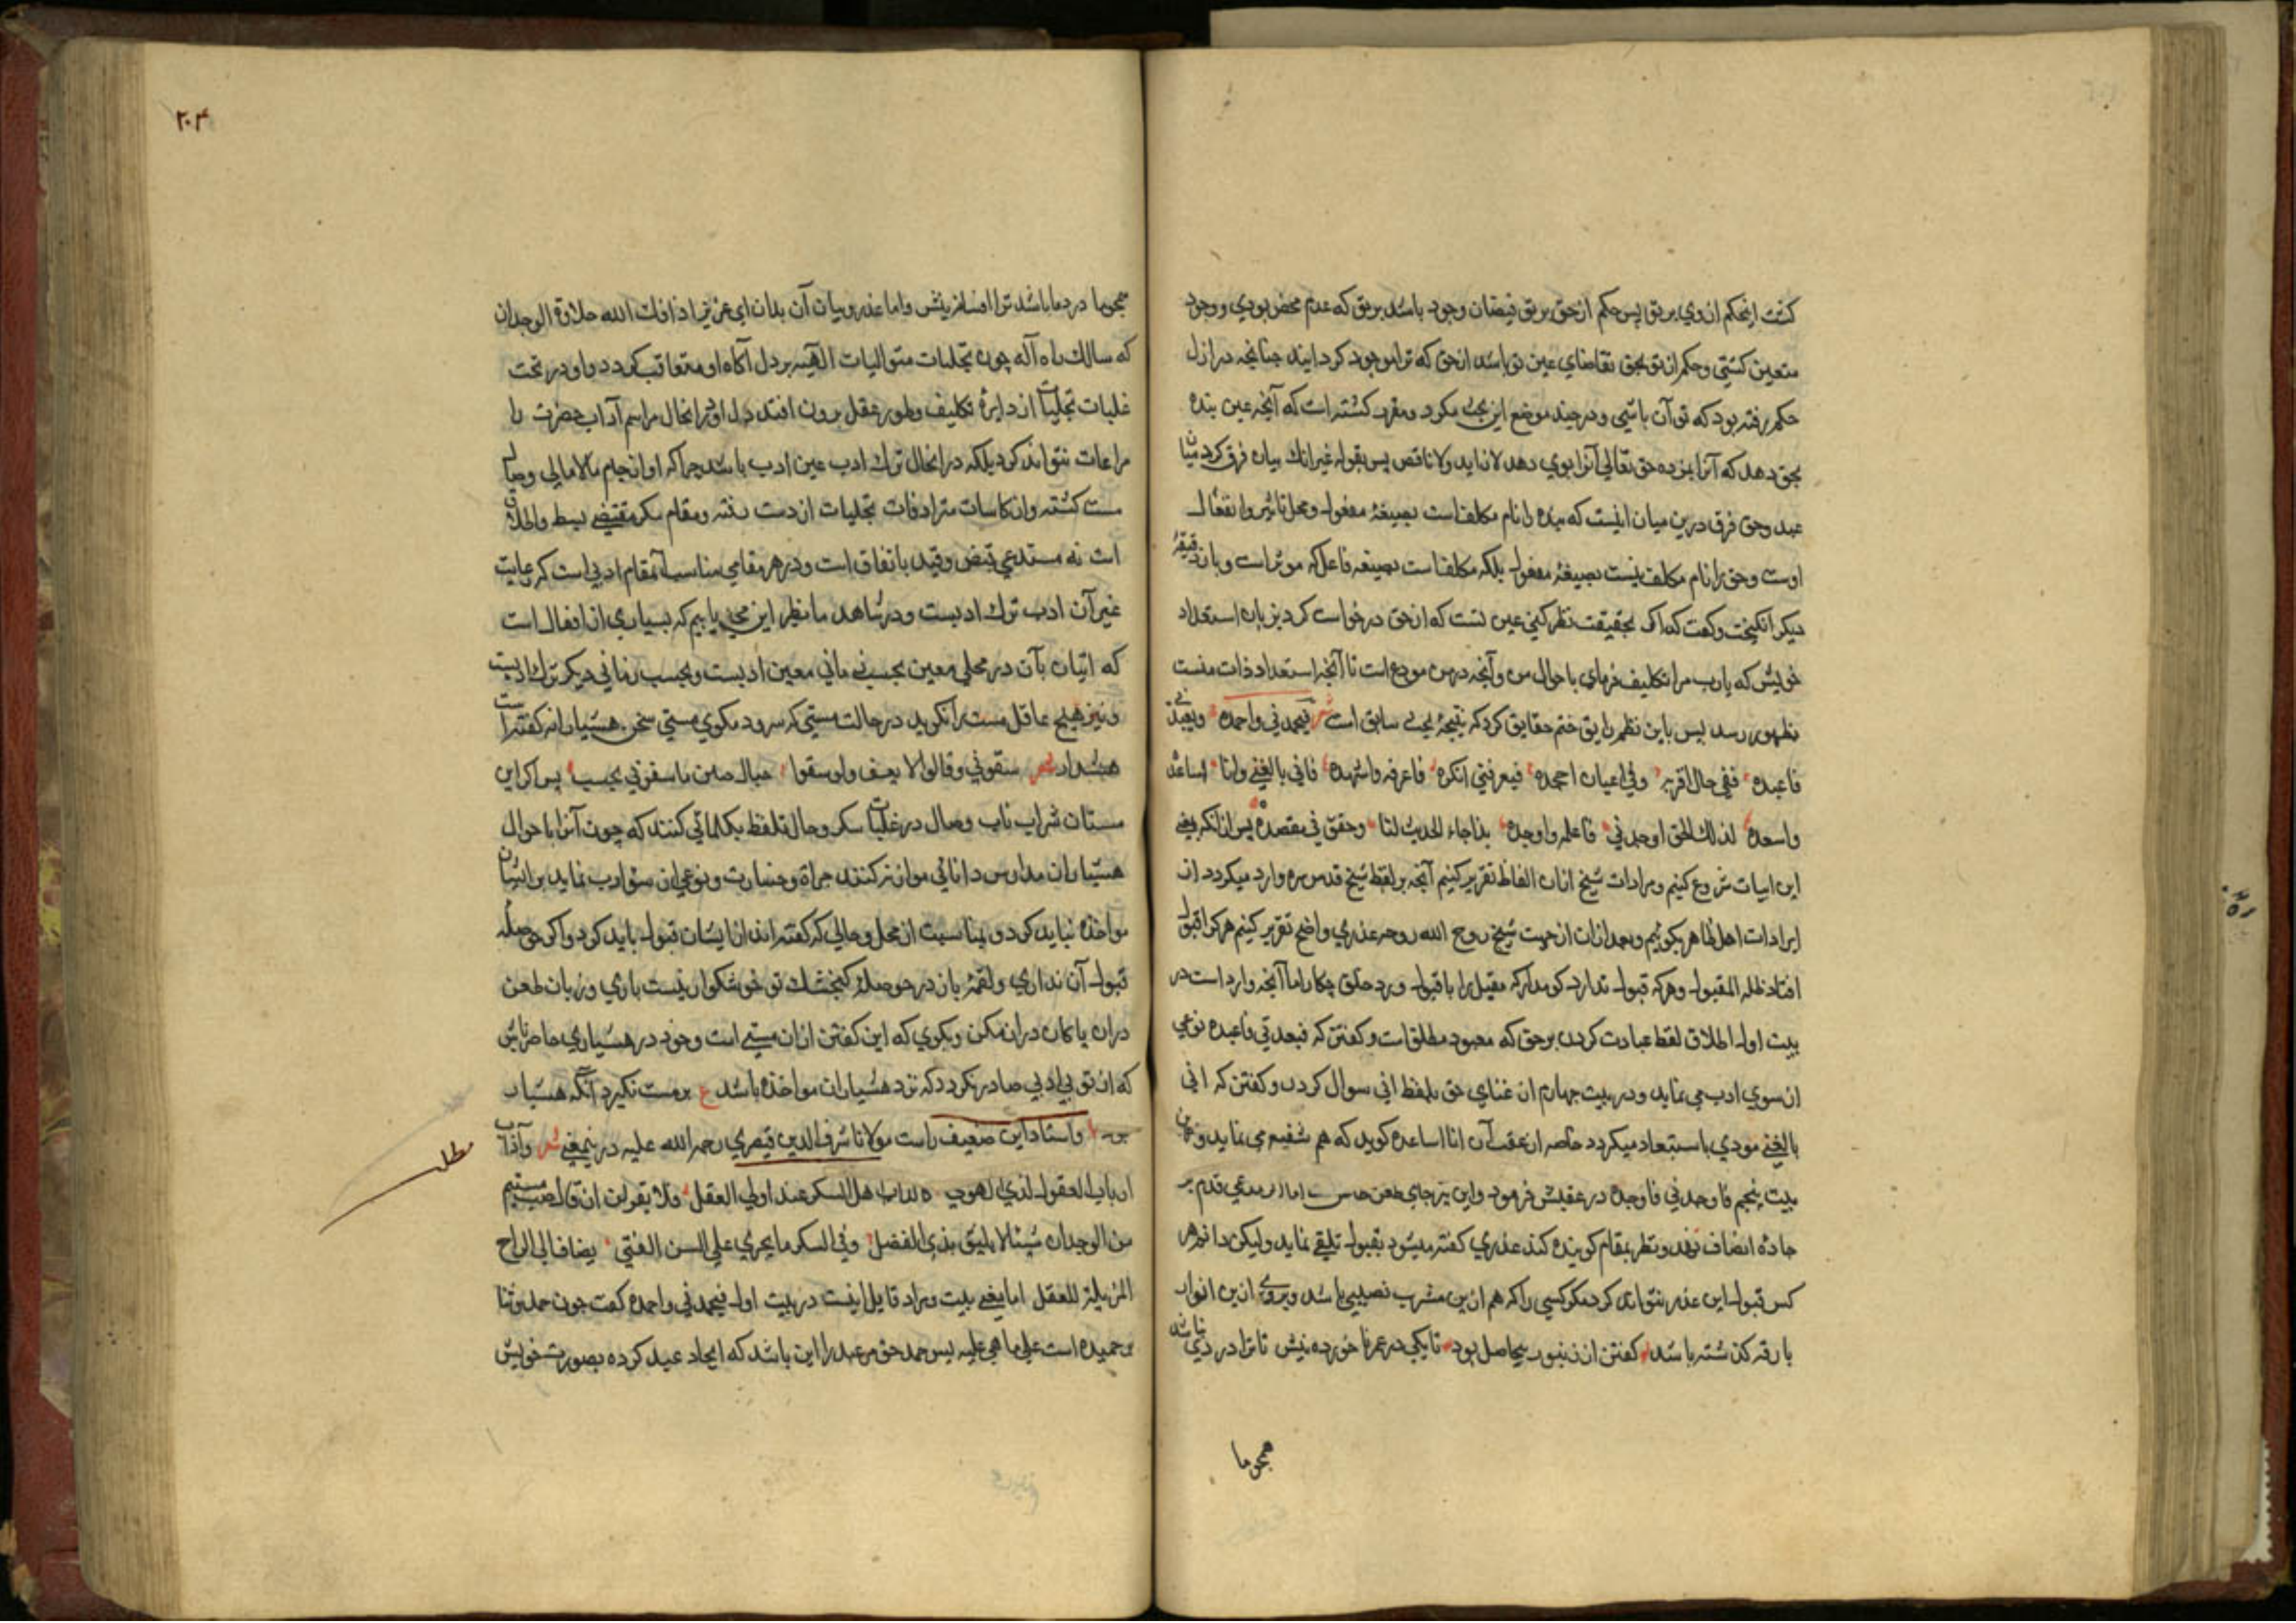 کشت اینحکم از وی بر تو پس حکم از حق بر تو فیضان وجود باشد بر تو که عدم محض بودی و وجود
متعین کشتی و حکم از تو بحق تقاضای عین تو باشد از حق که ترا موجود کرداند چنانچه در ازل
حکم رفته بود که تو آن باشی و در چند موضع این بحث مکرر و مقرر کشته است که آنچه عین بنده
بحق دهد که آنرا بمن ده حق تعالی آنرا بوی دهد لا زاید ولا ناقص پس بقوله غیر انک بیان فرق کرد میان
عبد و حق فرق درین میان اینست که بنده را نام مکلف است بصیغهٔ مفعول و محل تاثیر و انفعال
اوست و حق را نام مکلف نیست بصیغهٔ مفعول بلکه مکلف است بصیغه فاعل که موثر است و باز دقیقهٔ
دیکر انکیخت و کفت که اکر بحقیقت نظر کنی عین تست که از حق درخواست کرد بزبان استعداد
خویش که یارب مرا تکلیف فرمای باحوال من و آنچه درمن مودع است تا آنچه استعداد ذات منست
بظهور رسد پس باین نظم رایق ختم حقایق کرد که نتیجهٔ بحث سابق است شعر فیحمدنی و احمده و یعبدنی
فاعبده ففی حال اقر به و فی اعیان اجحده فیعرفنی انکره فاعرفه و اشهده فانی بالغنی و انا اساعده
واسعده لذلک الحق اوجدنی فاعلمه و اوجده بذا جاء الحدیث لنا و حقق فی مقصده پس از انکه بمعنی
این ابیات شروع کنیم و مرادات شیخ از ان الفاظ تقریر کنیم آنچه بر لفظ شیخ قدس سره وارد میکردد از
ایرادات اهل ظاهر بکوییم و بعد ازان از جهت شیخ روح الله روحه عذری واضح تقریر کنیم هر که را قبول
افتاد فله المقبول و هر که قبول ندارد کو مدار که مقبل را با قبول و رد خلق چکار اما آنچه وارد است در
بیت اول اطلاق لفظ عبادت کردن بر حق که معبود مطلق است و کفتن که فیعبدنی فاعبده نوعی
از سوی ادب می نماید و در بیت چهارم از غنای حق بلفظ انی سوال کردن و کفتن که انی
بالغنی مودی باستبعاد میکردد خاصه از عقب آن انا اساعده کوید که هم شنیع می نماید و همان
بیت پنجم فاوجدنی فاوجده در عقبش فرمود و این نیز جای طعن اما از مدعی قدم بر
جاده انصاف نهد و نظر بمقام کوینده کند عذری کفته میشود بقبول تلقی نماید و لیکن دانم هر
کس قبول این عذر نتواند کرد مکر کسی را که هم ازین مشرب نصیبی باشد و بروی ازین انوار
بارقه کذشته باشد کفتن از زنبور بیحاصل بود تا یکی در عمر نا خورده نیش تا ترا دردی نباشد
همچو ما
۲۰۴
همچو ما درد ما باشد ترا افسانه پیش و اما عذر و بیان آن بدان ای عزیز اذاقک الله حلاوة الوجدان
که سالک راه آله چون تجلیات متوالیات الهیه بر دل آکاه او متعاقب کردد و او در تحت
غلبات تجلیات از دایرهٔ تکلیف و طور عقل برون افتد دل او درانحال مراسم آداب حضرت را
مراعات نتواند کرد بلکه درانحال ترک ادب عین ادب باشد چرا که او از جام مالامالی وصال
مست کشته و از کاسات مترادفات تجلیات از دست رفته و مقام سکر مقتضی بسط و اطلاق
است نه مستدعی قبض و قید باتفاق است و در هر مقامی مناسب آنمقام ادبی است که رعایت
غیر آن ادب ترک ادبست و در شاهد ما نظیر این می یابیم که بسیاری از افعال است
که اتیان بآن در محلی معین بحسب زمانی معین ادبست و بحسب زمانی دیکر ترک ادبست
و نیز هیچ عاقل مست را نکوید در حالت مستی که سرود مکوی مستی سخن هشیارانه کفته است
هشدار شعر سقونی و قالوا لا تغن ولو سقوا جبال حنین ما سقونی لغنت پس اکر این
مستان شراب ناب وصال در غلبات سکر و حال تلفظ بکلماتی کنند که چون آنرا باحوال
هشیاران مدارس دانائی موازنه کنند جراة و جسارت و نوعی از سؤ ادب نماید بر ایشان
مواخذه نباید کرد و بمناسبت از محل و حالی که کفته اند از ایشان قبول باید کرد و اکر حوصلهٔ
قبول آن نداری و لقمهٔ باز در حوصلهٔ کنجشک تو خوشکوار نیست باری و زبان طعن
دران پاکان دراز مکن و بکوی که این کفتن ازان مستی است و خود در هشیاری حاضر باش
که از تو بی ادبی صادر نکردد که نزد هشیاران مواخذه باشد ع بر مست نکیرد آنکه هشیار
بود و استاد این ضعیف راست مولانا شرف الدین قیصری رحمه الله علیه در ینمعنی شعر و آداب
ارباب العقول لذی الهوی کاداب اهل السکر عند اولی العقل فلا یقرلن ان قال صب متیم
من الوجدان شیئا لا یلیق بذی الفضل و فی السکر ما یجری علی السن الفتی یضاف الی الراح
المزیلة للعقل اما معنی بیت و مراد قایل اینست در بیت اول فیحمدنی و احمده کفت چون حمد و ثنا
بر حمیده است علی ما هی علیه پس حمد حق مر عبد را این باشد که ایجاد عبد کرده بصورت خویش
مطلب